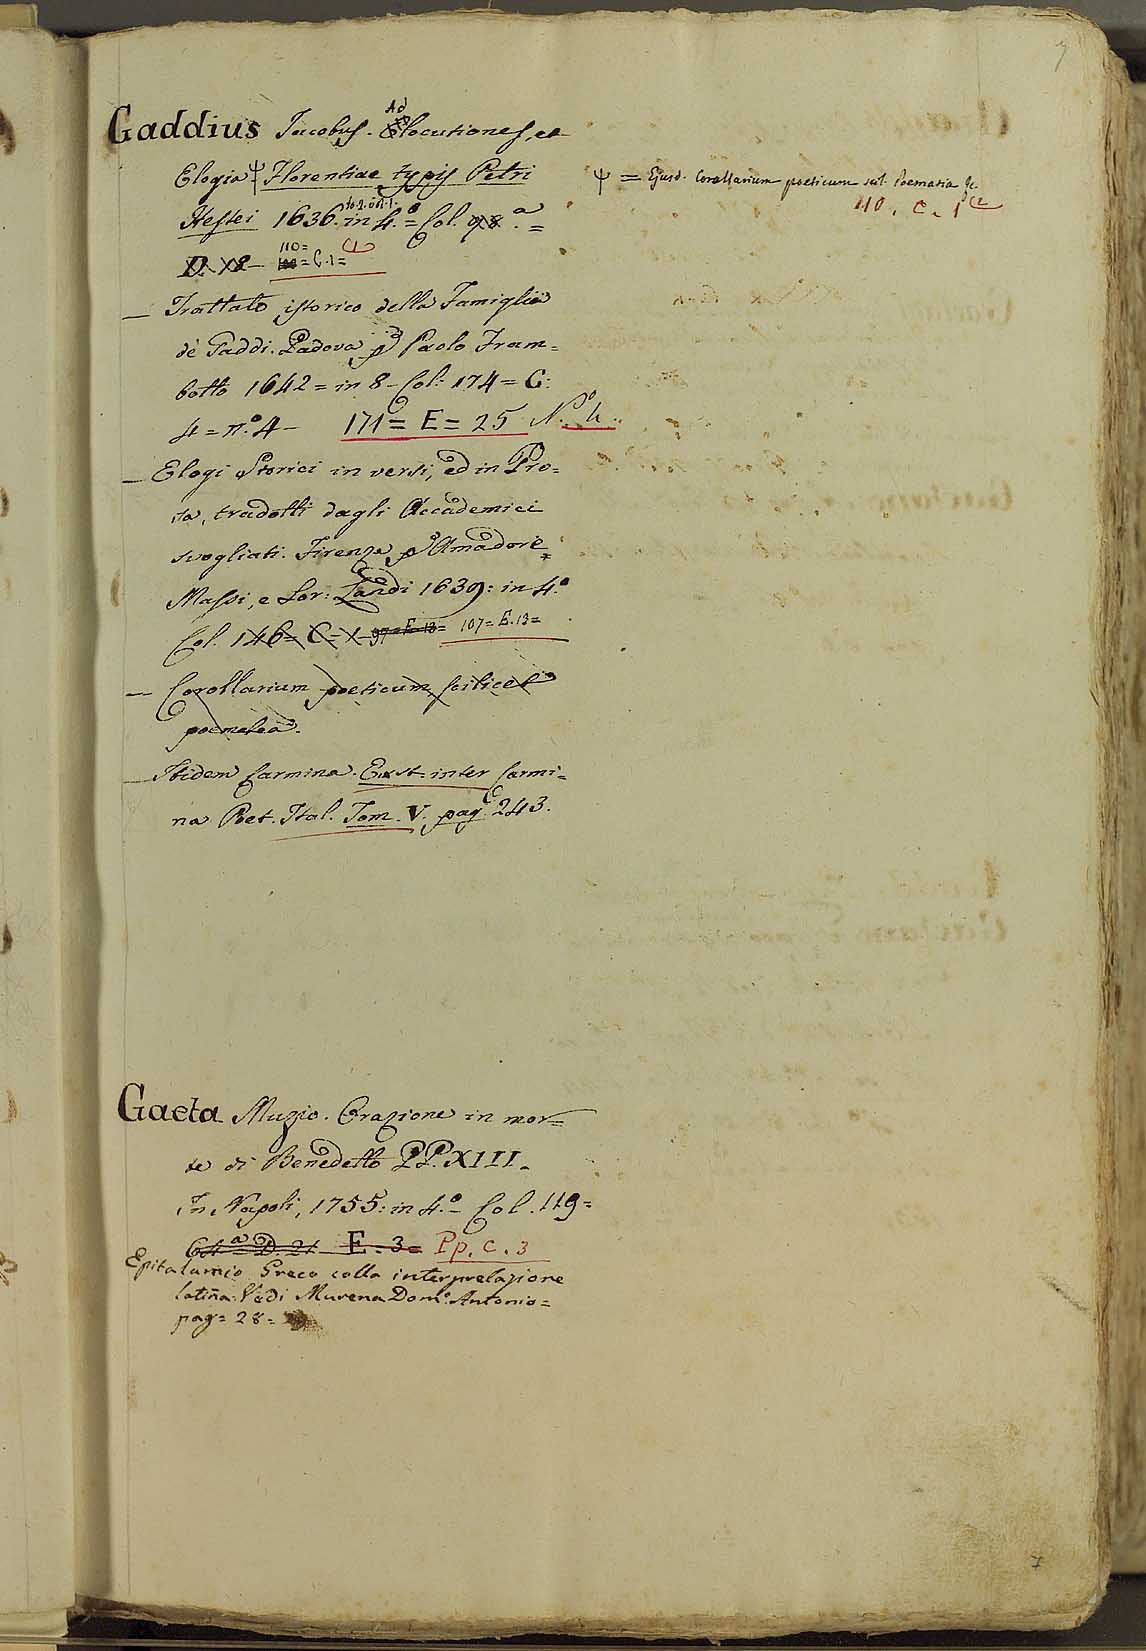 7
Gaddius Jacobus. Adlocutiones, et
Elogia Ψ Florentiae typis Petri
Nestei 1636. in 4.º = Col. 98. a =
D. X2 - 110 = C. 1 =
Ψ = Ejusd. Corollarium poeticum scil. Poematia &c.
110. C. 1
— Trattato istorico della Famiglia
de Gaddi. Padova p Paolo Fram=
botto 1642 = in 8 - Col: 174 = G:
st = n.º 4 - 171 = E = 25 N.º 4.
— Elogi Storici in versi, ed in Pro=
sa, tradotti dagli Accademici
svogliati. Firenze p Amadore
Massi, e Lor: Landi 1639: in 4.º
Col. 146 = C = X 97 = E. 13 = 107 = E. 13 =
— Corollarium poeticum, scilicet
poematia.
— Ibidem Carmina. Exst. inter Carmi=
na Poet. Ital. Tom. V. pag. 243.
Gaeta Muzio. Orazione in mor=
te di Benedetto PP. XIII.
In Napoli, 1755: in 4.º - Col. 119 =
D. 21 E. 3 = Pp. C. 3
Epitalamio Greco colla interpretazione
latina. Vedi Murena Dom.º Antonio =
pag = 28 =
7